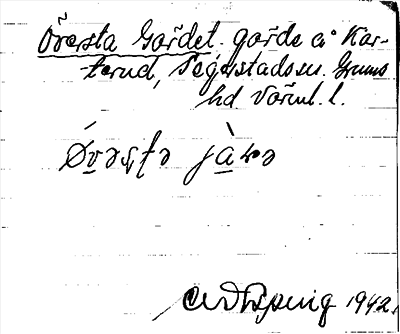 Översta Gärdet. gärde a° Kar-
terud, Segerstads sn. Grums
hd Värml. l.
Øvəʂʈə jàɽə
1942.